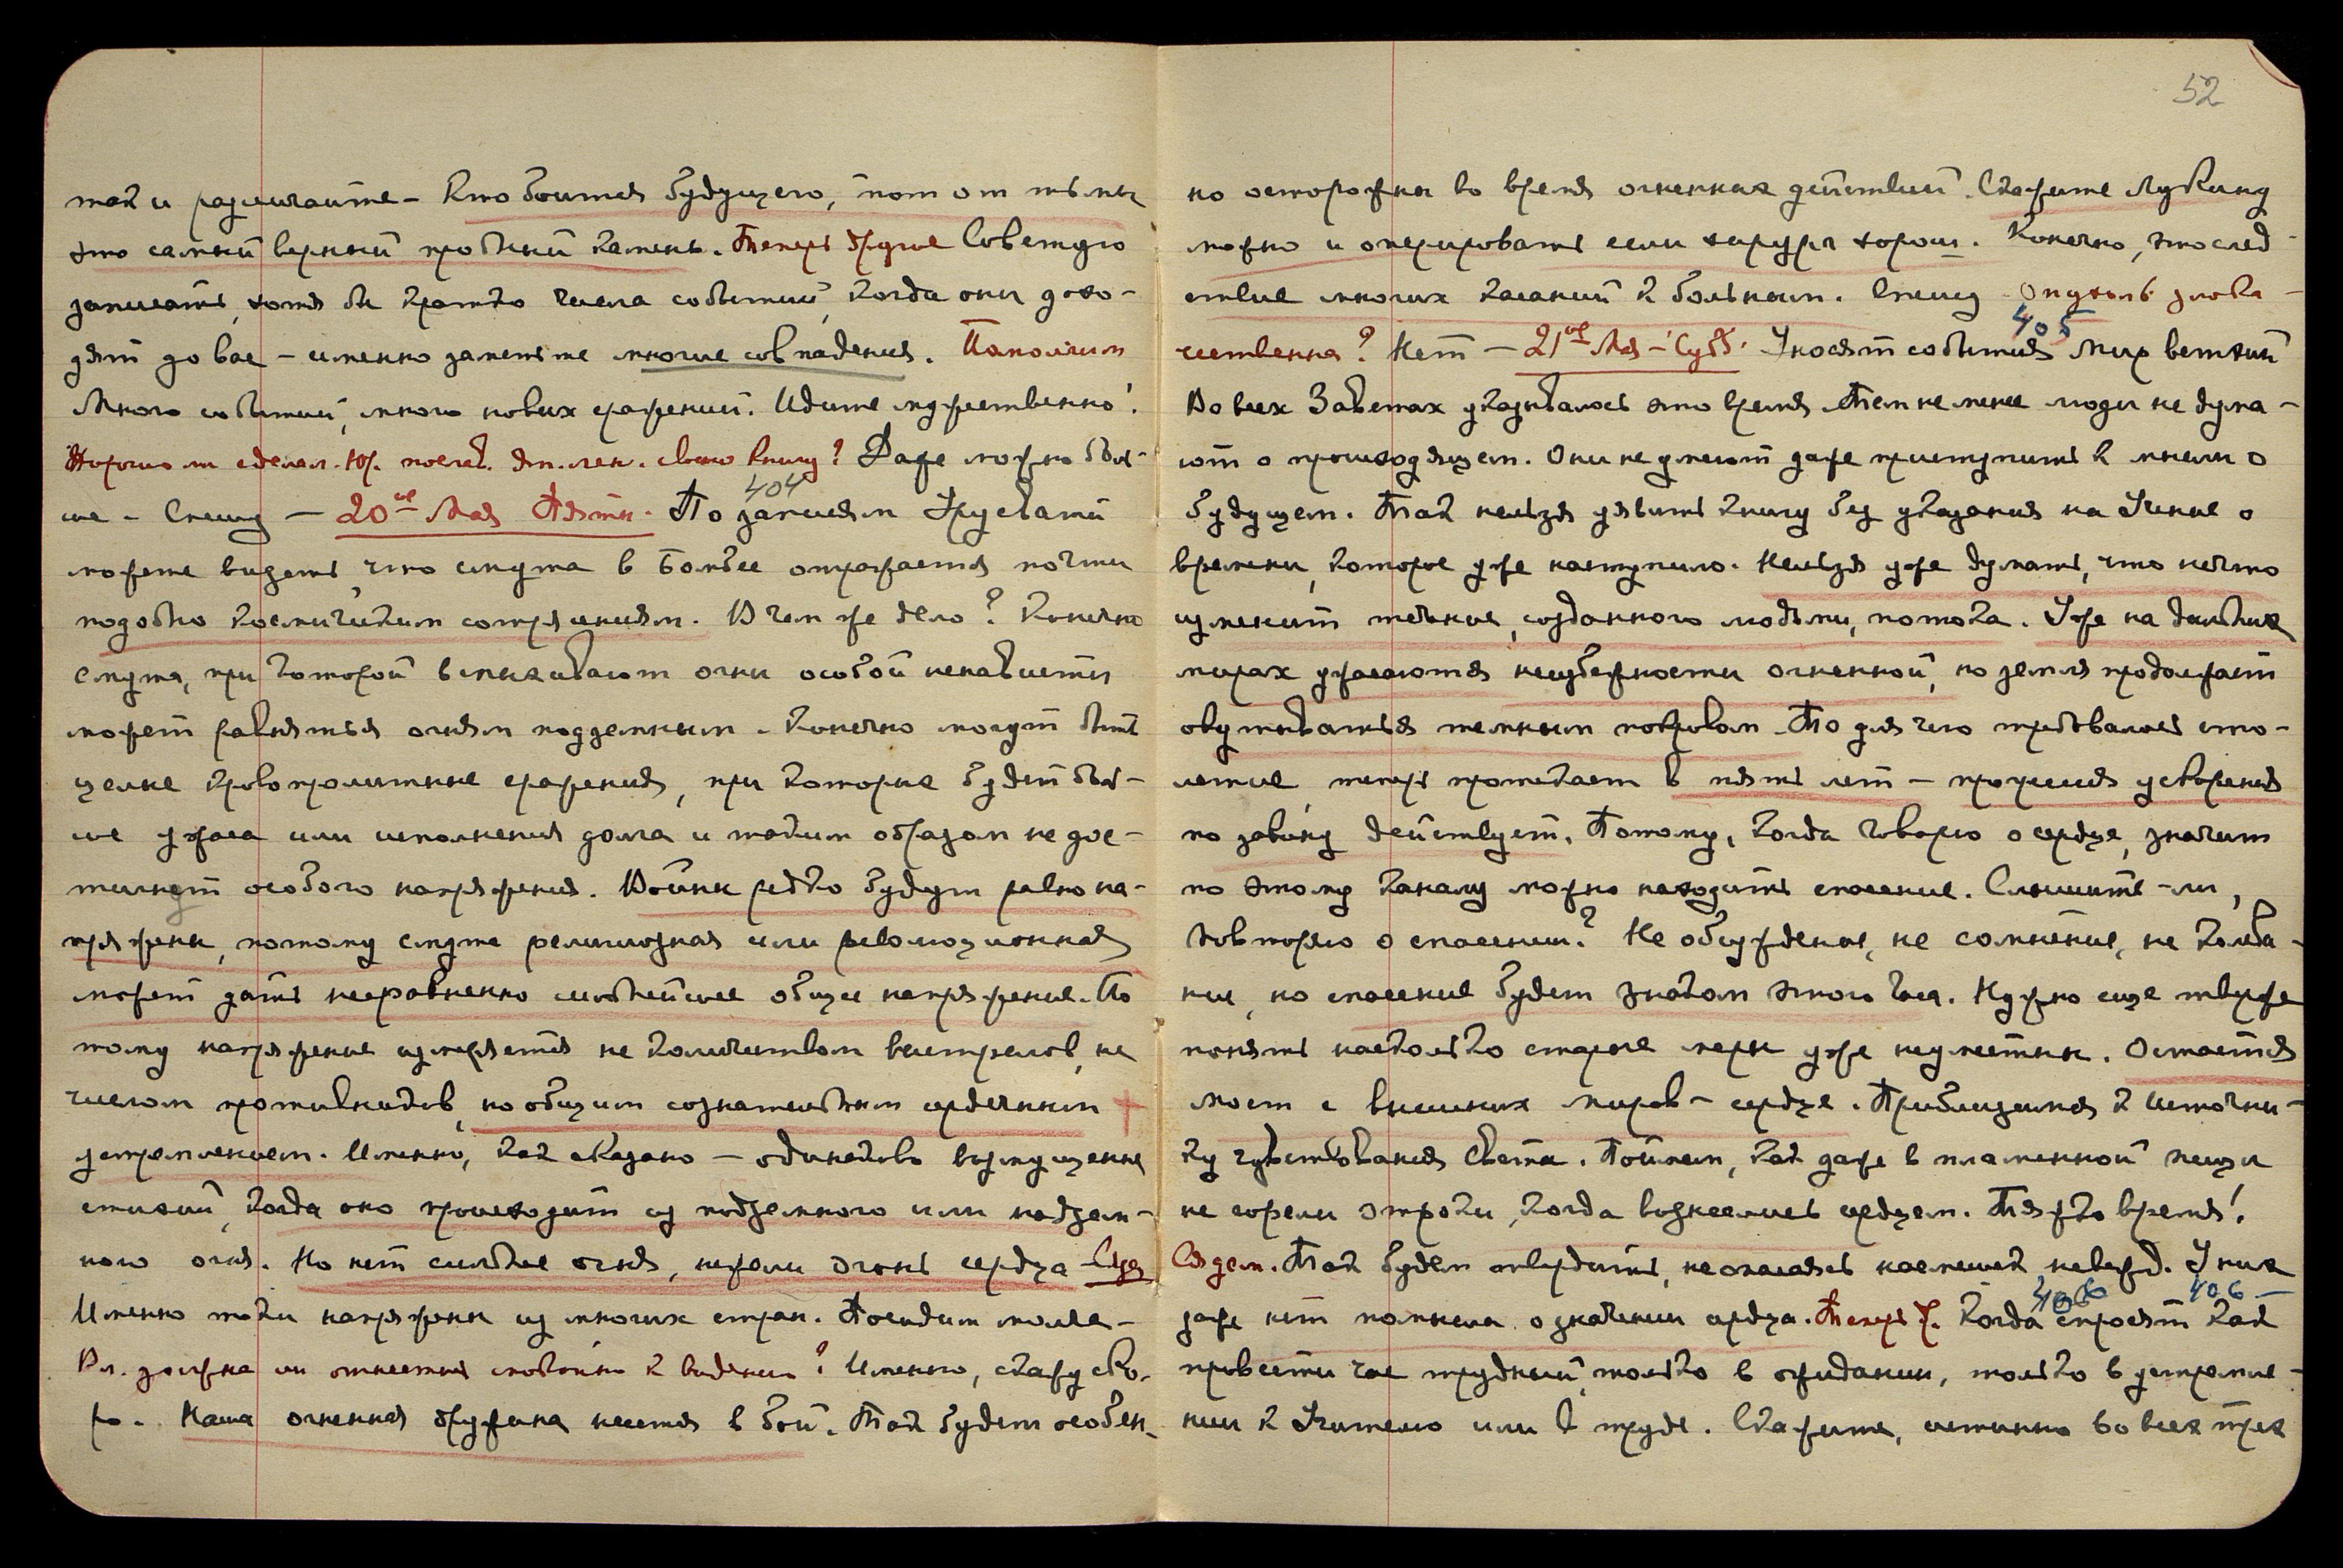 так и различайте – Кто боится будущего, тот от тьмы
это самый верный пробный камень. Теперь другое Советую
записать, хотя бы кратко числа событий, когда они дохо-
дят до вас – именно заметьте многие совпадения. Помолчим
Много событий, много новых сражений. Идите мужественно!
Хорошо ли сделал. Юр. послав. Эп. лен. свою книгу? Даже можно боль-
ше – Спешу – 20ое Мая Пятн. 404 По записям Урусвати
можете видеть, что смута в Бомбее отражается почти
подобно космическим сотрясениям. В чем же дело? Конечно
смута, при которой вспыхивают огни особой ненависти
может равняться огням подземным. Конечно могут быть
целые кровопролитные сражения, при которых будет боль-
ше ужаса или исполнения долга и таким образом не дос-
тигнет особого напряжения. Войны редко будут равно на-
пряжены, потому смута религиозная или революционная
может дать несравненно сильнейшее общее напряжение. По
тому напряжение измеряется не количеством выстрелов, не
числом противников, но общим сознательным сердечным
устремлением. Именно, как сказано – одинаково возмущение
стихий, когда оно происходит из подземного или надзем-
ного огня. Но нет сильнее огня, нежели огонь сердца –
Именно токи напряжены из многих стран. Посидим молча –
Вл. должна ли отнестись спокойно к видению? Именно, скажу ско-
ро. Наша огненная дружина несется в бой. Так будем особен-
52
но осторожны во время огненных действий. Скажите Лукину
можно и оперировать если хирург хорош. Конечно, это след-
ствие многих касаний к больным. Спешу – Опухоль злока-
чественна? Нет – 21ое Мая – Субб. 405 Уносят события Мир ветхий
Во всех Заветах указывалось это время. Тем не менее люди не дума-
ют о происходящем. Они не умеют даже приступить к мысли о
будущем. Так нельзя явить книгу без указания на Учение о
времени, которое уже наступило. Нельзя уже думать, что нечто
изменит течение, созданного людьми, потока. Уже на дальних
мирах ужасаются неизбежности огненной, но земля продолжает
окутываться темным покровом. То для чего требовалось сто-
летие, теперь протекает в пять лет – прогрессия ускорения
по закону действует. Потому, когда Говорю о сердце, значит
по этому каналу можно находить спасение. Слышите-ли,
повторяю о спасении? Не обсуждение, не сомнение, не колеба-
ние, но спасение будет знаком этого часа. Нужно еще тверже
понять насколько старые меры уже неуместны. Остается
мост с высших миров – сердце. Приблизимся к источни-
ку чувствования Света. Поймем, как даже в пламенной пещи
не горели отроки, когда возносились сердцем. Тяжко время!
Сядем. Так будем твердить, не опасаясь насмешек невежд. У них
даже нет помысла о значении сердца. Теперь Ч. 406 406 – Когда спросят как
провести час трудный, только в ожидании, только в устремле-
нии к Учителю или в труде. Скажите, истинно во всех трех